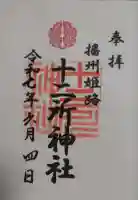 奉拝
播州姫路
十二所神社
令和七年六月四日